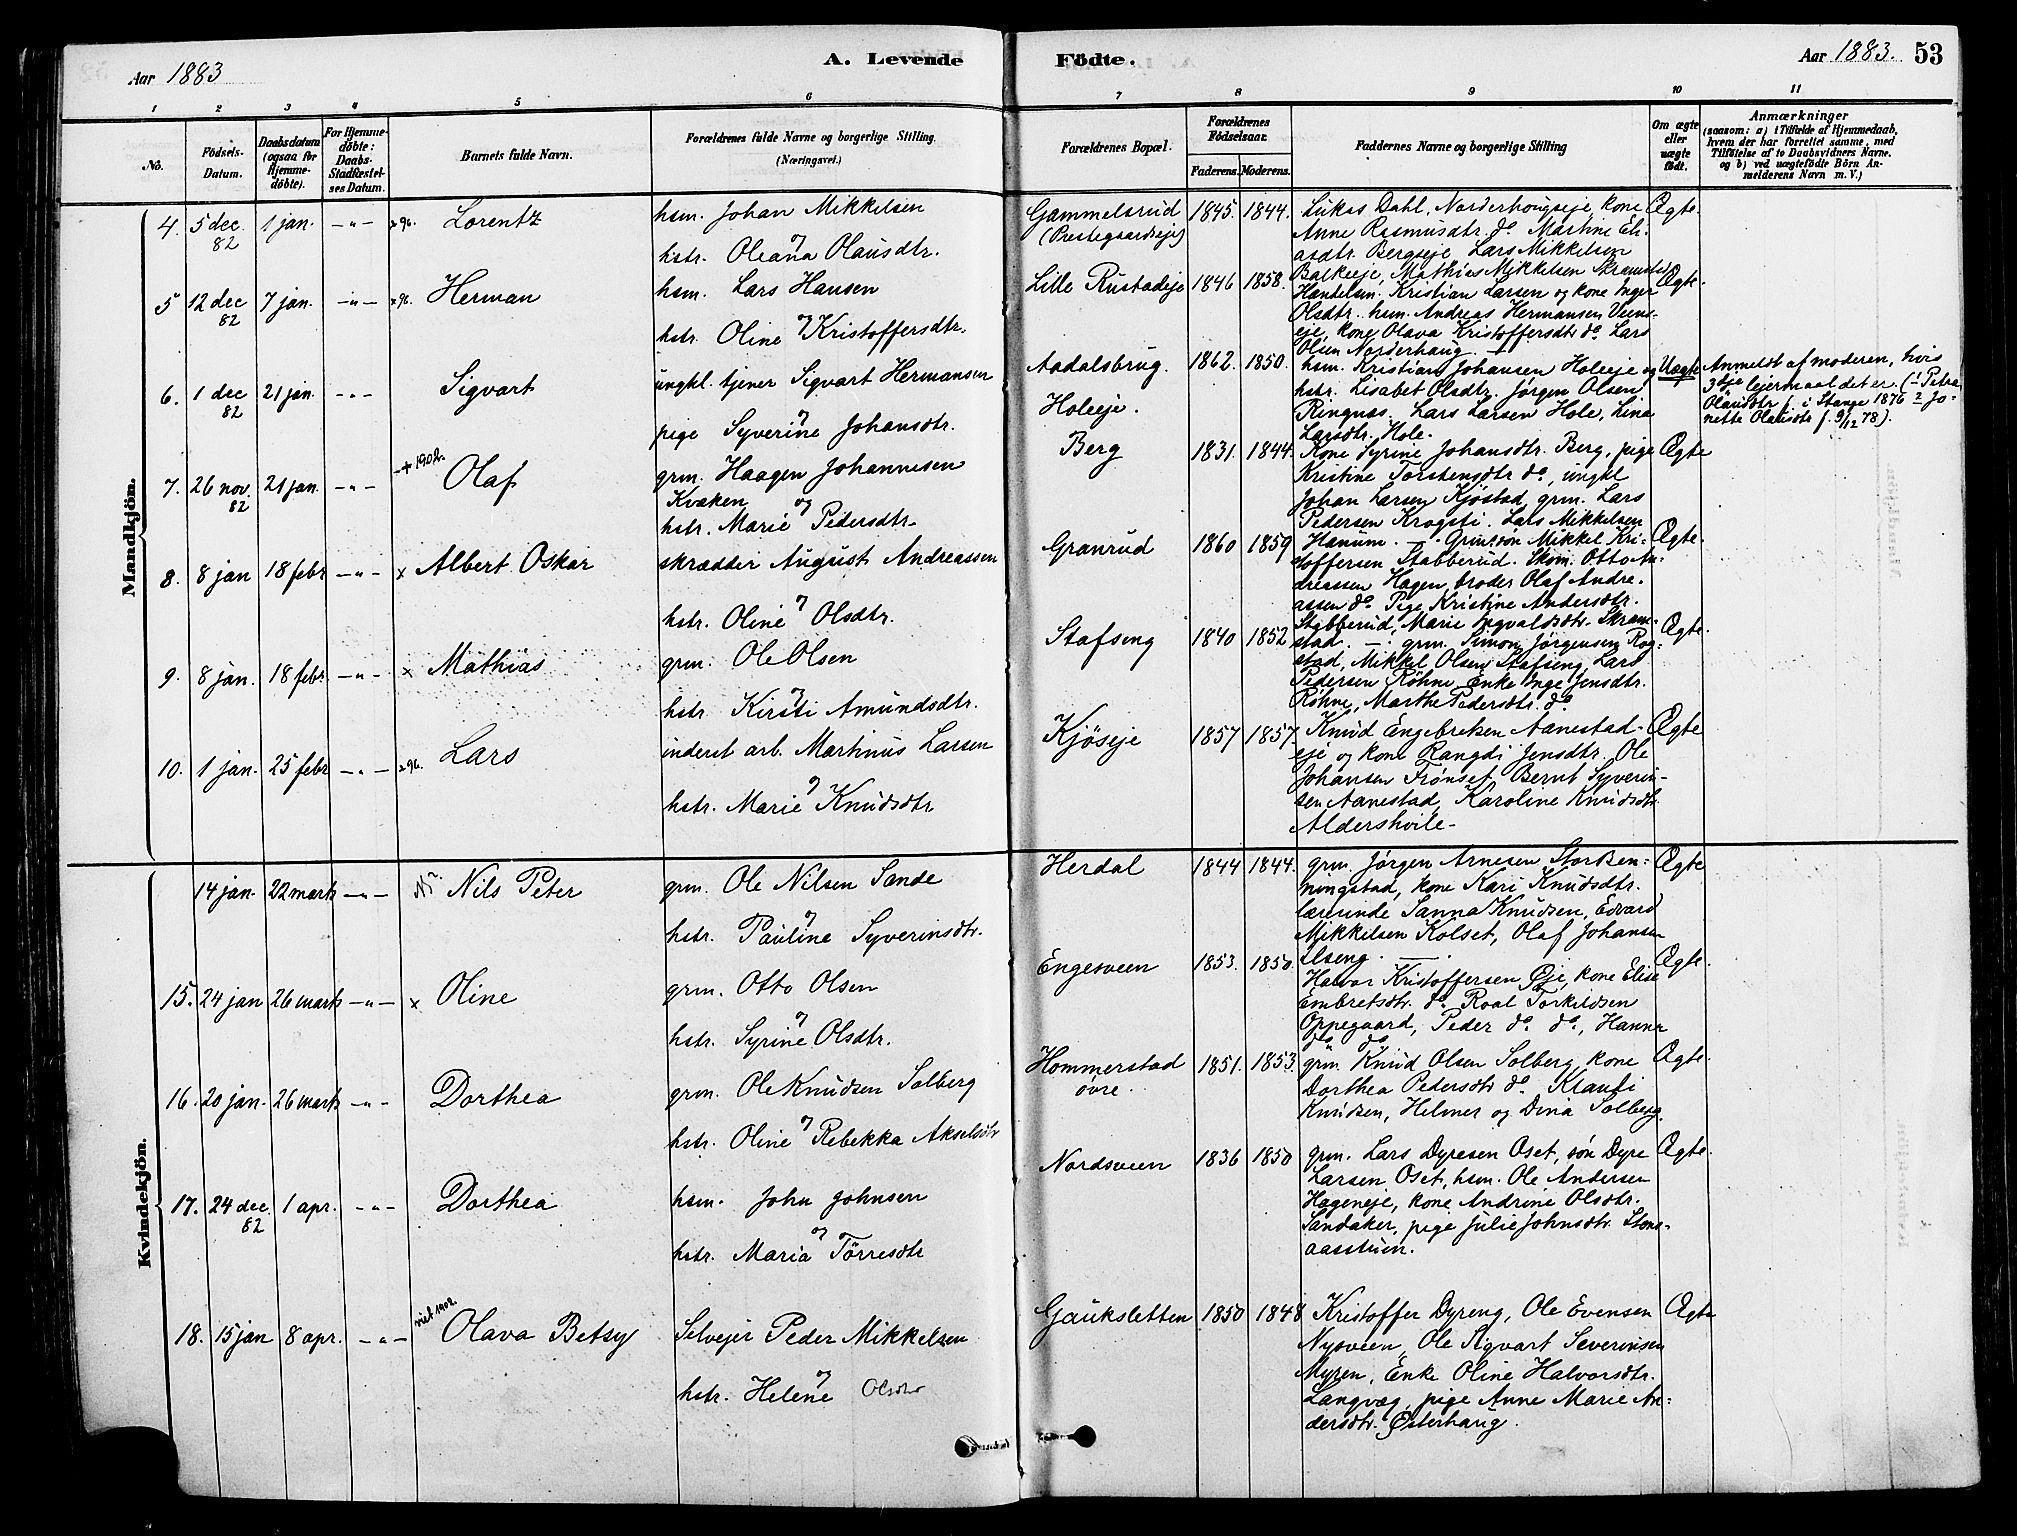 Aar 1883
A. Levende
Födte.
Aar 1883. 53
1 2 3 4 5 6 7 8 9 10 11
No.
Födsels-Datum.
Daabsdatum (ogsaa for Hjemme-döbte).
For Hjemme-döbte: Daabs-Stadfæstel-ses Datum.
Barnets fulde Navn.
Forældrenes fulde Navne og borgerlige Stilling. (Næringsvei.)
Forældrenes Bopæl.
Forældrenes Födselsaar.
Faderens. Moderens.
Faddernes Navne og borgerlige Stilling
Om ægte eller uægte födt.
Anmærkninger
(saasom: a) i Tilfælde af Hjemmedaab, hvem der har forrettet samme, med Tilföielse af to Daabsvidners Navne, og b) ved uægtefödte Börn An-melderens Navn m. V.)
Mandkjön.
4. 5 dec. 82 1 jan. -"- Lorentz
hsm. Johan Mikkelsen
og
hstr. Oleana Olausdtr.
Gammelsrud (Prestegaardseje) 1845. 1844.
Lukas Dahl, Norderhougseje, kone
Anne Rasmusdtr. do Martine Eli-
asdtr. Bergseje, Lars Mikkelsen
Balkeeje, Mathias Mikkelsen Skramstad
Ægte.
5 12 dec 82 7 jan. -"- Herman
hsm. Lars Hansen
og
hstr. Oline Kristoffersdtr.
Lille Rustadeje 1846 1858.
Handelsm. Kristian Larsen og kone Inger
Olsdtr. hsm. Andreas Hermansen Veens-
eje, kone Olava Kristoffersdtr do Lars
Olsen Norderhaug.
Ægte.
6. 1 dec 82 21 jan. -"- Sigvart
ungkl. tjener Sigvart Hermansen
og
pige Syverine Johansdtr.
Aadalsbrug. Holeeje. 1862. 1850.
hsm. Kristian Johansen Holeeje og
hstr. Lisabet Olsdtr. Jørgen Olsen
Ringnæs. Lars Larsen Hole, Lina
Larsdtr. Hole.
Uægte
Anmeldt af moderen, hvis
3dje lejermaal det er. (1 Petra
Olausdtr f. i Stange 1876 2 Jo-
nette Olausdtr f. 9/12 78).
7. 26 nov. 82 21 jan. -"- + 1902. Olaf
grm. Haagen Johannesen
Kvæken og
hstr. Marie Pedersdtr.
Berg 1831. 1844.
Kone Syrine Johansdtr. Berg, pige
Kristine Torstensdtr do, ungkl
Johan Larsen Kjøstad, grm. Lars
Pedersen Krogsti. Lars Mikkelsen
Hanum.
Ægte
8. 8 jan 18 febr -"- x Albert Oskar
skrædder August Andreassen
og
hstr. Oline Olsdtr.
Granrud 1860 1859
Grm.søn Mikkel Kri-
stoffersen Stabberud. Skom. Otto An-
dreassen Hagen, broder Olaf Andre-
assen do. Pige Kristine Andersdtr.
Stabberud, Marie Ingvaldsdtr. Skram-
stad.
Ægte.
9. 8 jan. 18 febr -"- x Mathias
grm. Ole Olsen
og
hstr. Kirsti Amundsdtr.
Stafseng 1840 1852
grm. Simon Jørgensen Rog-
stad, Mikkel Olsen Stafseng, Lars
Pedersen Røhne, Enke Inge Jensdtr.
Røhne, Marthe Pedersdtr. do
Ægte.
10. 1 jan. 25 febr -"- Lars
inderst arb. Martinus Larsen
og
hstr. Marie Knudsdtr
Kjöseje 1857 1857
Knud Engebretsen Aanestad-
eje og kone Rangdi Jensdtr. Ole
Johansen Frønset, Bernt Syverin-
sen Aanestad, Karoline Knudsdtr.
Aldershvile.
Ægte
Kvindekjön.
14 jan. 22 marts -"- Nils Peter
grm. Ole Nilsen Sande
og
hstr. Pauline Syverinsdtr.
Herdal 1844 1844.
grm. Jørgen Arnesen StorBen-
ningstad, kone Kari Knudsdtr.
lærerinde Sanna Knudsen, Edvard
Mikkelsen Kolset, Olaf Johansen
Ilseng.
Ægte
15. 24 jan 26 marts -"- x Oline
grm. Otto Olsen
og
hstr. Syrine Olsdtr.
Engesveen 1853. 1850.
Halvor Kristoffersen Øje, kone Elise
Embretsdtr. do. Roal Torkildsen
Oppegaard, Peder do do, Hanna
do do
Ægte.
16. 20 jan. 26 marts -"- Dorthea
grm. Ole Knudsen Solberg
og
hstr. Oline Rebekka Akselsdtr
Hommerstad övre. 1851. 1853.
grm. Knud Olsen Solberg, kone
Dorthea Pedersdtr do. Klaufi
Knudsen, Helmer og Dina Solberg.
Ægte.
17. 24 dec. 82 1 apr. -"- Dorthea
hsm. John Johnsen
og
hstr. Maria Törresdtr
Nordsveen 1836 1850
grm. Lars Dyresen Oset, søn Dyre
Larsen Oset, hsm. Ole Andersen
Hageneje, kone Andrine Olsdtr.
Sandaker, pige Julie Johnsdtr. Stens-
aasstuen.
Ægte.
18. 15 jan 8 apr. -"- viet 1902. Olava Betsy
Selvejer Peder Mikkelsen
og
hstr. Helene Olsdtr
Gauksletten 1850 1848
Kristoffer Dyreng, Ole Evensen
Nysveen, Ole Sigvart Severinsen
Myren, Enke Oline Halvorsdtr.
Langvæg, pige Anne Marie An-
dersdtr. Østerhaug.
Ægte